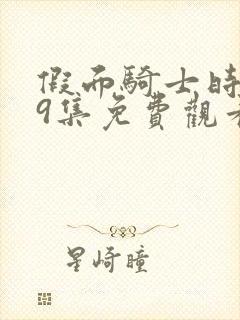 假面騎士時
9集免費觀看
星崎瞳